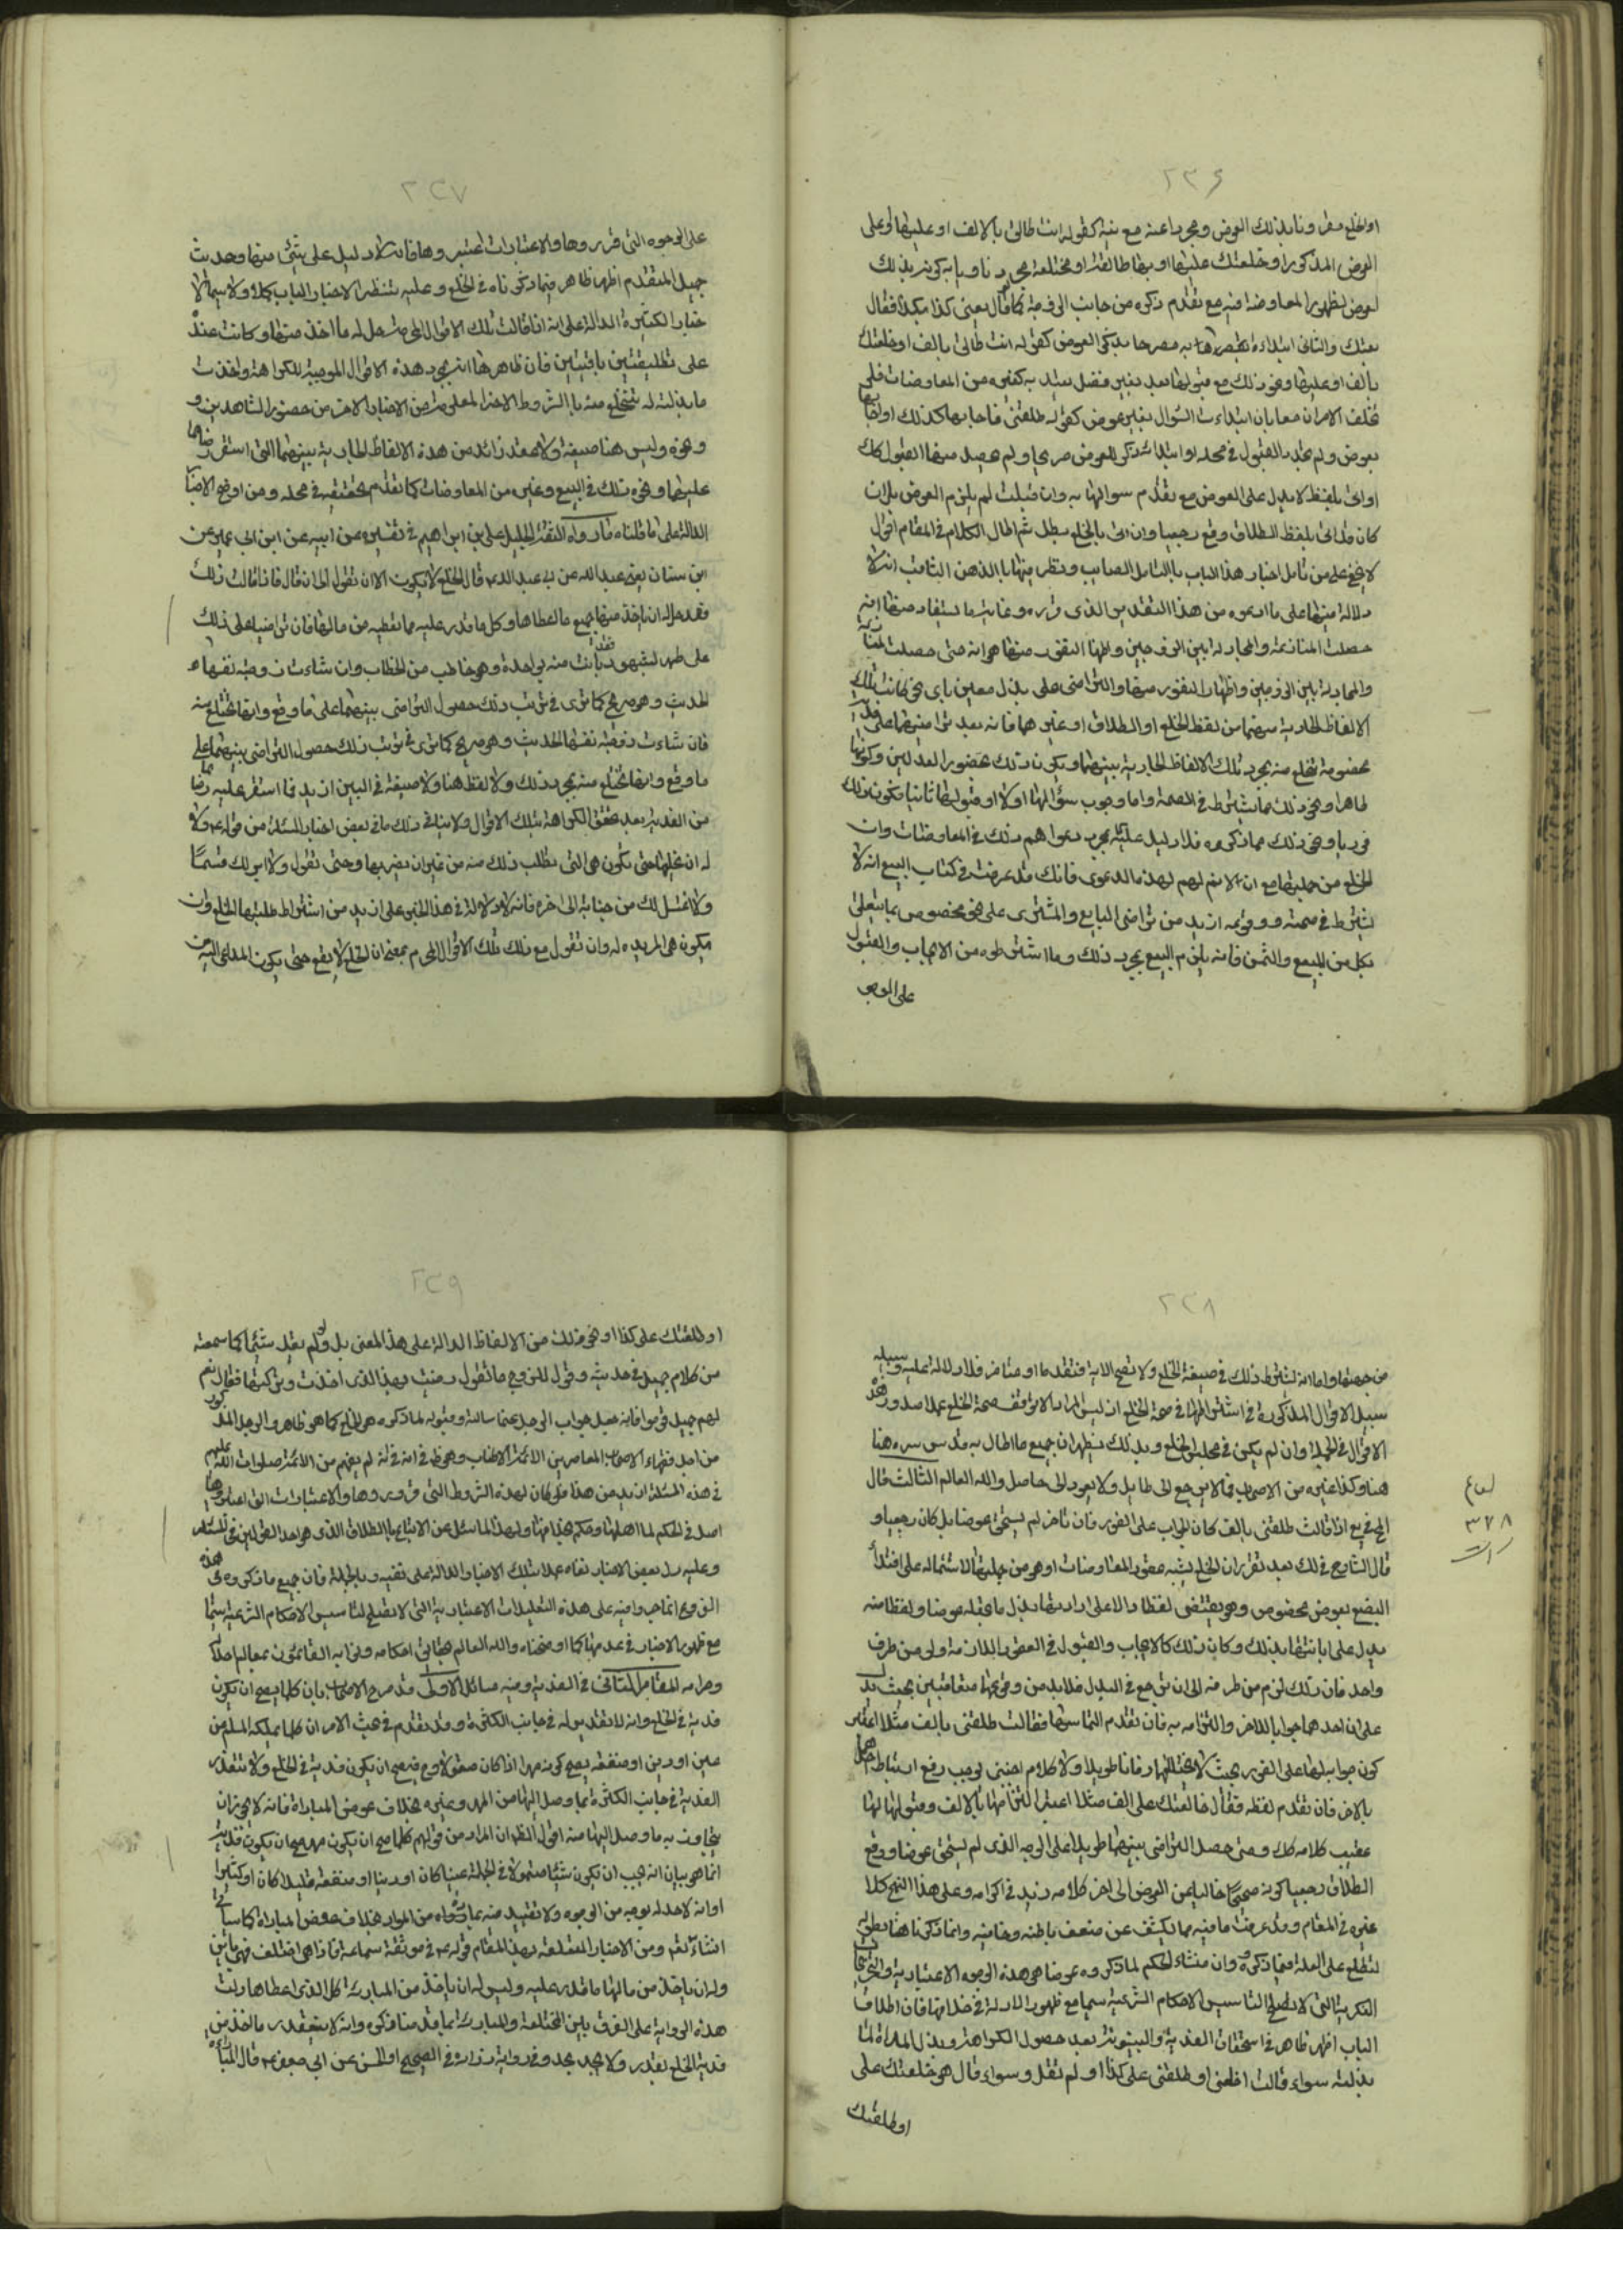 ٢٣٦
او الخلع مقرونا بذلك العوض ومجردا عنه مع نية كقوله انت طالق بالالف او عليها او على
العوض المذكور او خلعتك عليها او بها طالقة او مختلعة مجردا ناويا به كونه بذلك
لعوض لظهور المعاوضة فيه مع تقدم ذكره من جانب الزوجة كما قال بعنى كذا بكذا فقال
بعتك والثانى ابتداءه مصرحا بذكر العوض كقوله انت طالق بالف او خلعتك
بالف او عليها ونحو ذلك مع قبولها بعد بغير فصل يعتد به كغيره من المعاوضات فلو
تخلف الامران معا بان ابتداءت السؤال بغير عوض كقوله طلقنى فاجابها كذلك او
بعوض ولم يتجدد القبول في محله او ابتدات بذكر العوض صريحا ولم يحصل منها القبول كك
او اتى بلفظ لا يدل على العوض مع تقدم سوالها به وان قبلت لم يلزم العوض بل ان
كان قد اتى بلفظ الطلاق وقع رجعيا وان اتى بالخلع بطل ثم اطال الكلام في المقام اقول
لا يخفى على من تامل اخبار هذا الباب بالتامل الصايب ونظر فيها بالذهن الثاقب انه لا
دلالة فيها على ما ادعوه من هذا التقدير الذى قرره وغاية ما يستفاد منها انه
حصلت المنازعة والمجادلة بين الزوجين واظهار النفور منها هو انه متى حصلت المنازعة
والمجادلة بين الزوجين واظهار النفور منها والتراضى على بذل معين باى نحو كانت تلك
الالفاظ الجارية بينهما من لفظ الخلع او الطلاق او غيرهما فانه بعد تراضيهما على
مخصومة تخلع منه بمجرد تلك الالفاظ الجارية بينهما ويكون ذلك بحضور العدلين وكونها
طاهرا ونحو ذلك مما يشترط في الصحة واما وجوب سؤالها اولا او قبولها ثانيا وكون ذلك
فوريا ونحو ذلك مما ذكروه فلا دليل عليه بمجرد دعواهم ذلك في المعاوضات وان
الخلع من جملتها مع انه لا يتم لهم لهذه الدعوى فانك قد عرفت في كتاب البيع انه لا
يشترط في صحته ووقوعه ازيد من تراضى البايع والمشترى على نحو مخصوص بما يتعلق
بكل من المبيع والثمن فانه يلزم البيع بمجرد ذلك وما اشترطوه من الايجاب والقبول
على الوجوه
٢٣٧
على الوجوه التى قرروها والاعتبارات اعتبروها فانه لا دليل على شئ منها وحديث
جميل المتقدم اظهر ظاهر فيما ذكرناه في الخلع وعليه تنتظر الاخبار الباب كملا ولا سيما الا
خبار الكثيرة الدالة على انه اذا قالت تلك الاقوال المحرمة حل له ما اخذ منها وكانت عنده
على تطليقتين باقيتين فان ظاهرها انه بمجرد هذه الاقوال الموجبة للكراهة واخذت
ما بذلت له تختلع منه بالشروط الاخر المعلومة من الاخبار الاخر من حضور الشاهدين و
ونحوه وليس هنا صيغة ولا عقد زائد من هذه الالفاظ الجارية بينهما التى استقر رضاهما
عليها ونحو ذلك في البيع وغيره من المعاوضات كما تقدم تحقيقه في محله ومن اوضح الاخبار
الدالة على ما قلناه ما رواه الثقة الجليل على بن ابراهيم في تفسيره عن ابيه عن ابن ابى عمير عن
ابن سنان يعنى عبد الله عن ابى عبد الله ع قال الخلع لا يكون الا ان تقول المراة قال فاذا قالت ذلك
فقد حل له ان ياخذ منها جميع ما اعطاها وكل ما قدر عليه مما تعطيه من مالها فان تراضيا على ذلك
على طهر بشهود فقد بانت منه بواحدة وهو خاطب من الخطاب وان شاءت زوجته نفسها
الحديث وهو صريح كما ترى في ترتب ذلك حصول التراضى بينهما على ما وقع وانها تختلع منه
فان شاءت زوجته نفسها الحديث وهو صريح كما ترى في ترتب ذلك حصول التراضى بينهما على
ما وقع وانها تختلع منه بمجرد ذلك ولا لفظ هنا ولا صيغة في البين ازيد مما استقر عليه رضاهما
من الفدية بعد تحقق الكراهة بتلك الاقوال ولا ينافى ذلك ما في بعض اخبار المسئلة من قوله ع ولا
له ان يخلعها حتى تكون هى التى تطلب ذلك منه من غير ان يضر بها وحتى تقول ولا ابر لك قسما
ولا اغتسل لك من جنابة الى اخره فانه لا دلالة في هذا الخبر على ازيد من اشتراط طلبها الخلع وان
يكون هى المريده له وان تقول مع ذلك تلك الاقوال المحرم بمعنى ان الخلع لا يقع حتى يكون المداعى اليه من
٢٣٨
من جهتها واما انه يشترط ذلك في صيغة الخلع ولا تصح الا به فتقدما او متاخر فلا دلالة عليه وسبيله
سبيل الاقوال المذكورة في اشتراطها في صحة الخلع اذ ليس المراد الا توقف صحة الخلع على صدور هذه
الاقوال في الجملة وان لم يكن في مجلس الخلع وبذلك يظهر ان جميع ما اطال به قدس سره هنا
هنا وكذا غيره من الاصحاب مما لا يرجع الى طايل ولا يعود الى حاصل والله العالم الثالث قال
المحقق يع اذا قالت طلقنى بالف كان الجواب على الفور فان تاخر لم يستحق عوضا بل كان رجعيا و
قال الشارح في لك بعد تقرير ان الخلع يشبه عقود المعاوضات او هو من جملتها لاشتماله على افتداء
البضع بعوض مخصوص وهو يقتضى لفظا دالا على ارادتها بذل ما تجعله عوضا ولفظا منه
يدل على ابانتها بذلك وكان ذلك كالايجاب والقبول في العقود اللازمة ولو من طرف
واحد فان ذلك لازم من طرفه الى ان ترجع في البذل فلا بد من وقوعها متعاقبين بحيث يدل
على ان احدهما جوابا للاخر والتزامه به فان تقدم التماسها فقالت طلقنى بالف مثلا اعتبر
كون جوابه لها على الفور بحيث لا يتخللهما زمانا طويلا ولا كلام اجنبى يوجب رفع ارتباط احدهما
بالاخر فان تقدم لفظه فقال خالعتك على الف مثلا اعتبر التزامها بالالف وقبولها لها
عقيب كلامه كك ومتى حصل التراضى بينهما طويلا على الوجه الذى لم يستحق عوضا ووقع
الطلاق رجعيا كونه صحيحا خاليا عن العوض الى اخر كلامه زيد في اكرامه وعلى هذا النهج كلام
غيره في المقام وقد عرفت ما فيه مما يكشف عن ضعف باطنه وخافيه وانما ذكرنا هنا بطوله
لتطلع على العلة فيما ذكروه وان منشاء الحكم لما ذكروه عوضا هى هذه الوجوه الاعتبارية والتخريجات
الفكرية التى لا تصلح لتاسيس الاحكام الشرعية سيما مع ظهور الادلة في خلافها فان اطلاق
الباب اظهر ظاهر في استحقاق الفدية والبينونة بعد حصول الكراهة وبذل المراة لما
بذلته سواء قالت اخلعنى او طلقنى على كذا او لم تقل وسواء قال هو خلعتك على
او طلقتك
٣٢٨
٢٣٩
او طلقتك على كذا او نحو ذلك من الالفاظ الدالة على هذا المعنى بل ولو لم يقل شيئا كما سمعته
من كلام جميل في حديثه وقول للزوج ما تقول رضيت بهذا الذى اخذت وتركتها فقال نعم
لهم جميل قوموا فانه جعل جواب الرجل عما ساله وقبوله لما ذكره هو الخلع كما هو ظاهر والرجل المذكور
من اجل فقهاء الاصحاب المعاصرين الائمة الاطياب وهو ظ في انه لم يفهم من الائمة صلوات الله عليهم
في هذه المسئلة ازيد من هذا ولو كان لهذه الشروط التى قرروها والاعتبارات التى اعتبروها
اصل في الحكم لما اهملها
وعليه دل بعض الاخبار نفاه عملا بتلك الاخبار الدالة على نفيه وبالجملة فان جميع ما ذكروه في هذه
الفروع انما جروا فيه على هذه التعليلات الاعتبارية التى لا تصلح لتاسيس الاحكام الشرعية سيما
مع ظهور الاخبار في عدمها كما اوضحناه والله العالم بحقائق احكامه ونوابه القائمون بمعالم حلاله
وحرامه المقام الثانى في الفدية وفيه مسائل الاولى قد صرح الاصحاب بان كلما يصح ان يكون
فدية في الخلع وانه لا تقدير له في جانب الكثرة وقد تقدم في مبحث الامر ان كلما يملكه المسلم من
عين او دين او منفعة يصح كونه مهرا اذا كان متمولا وح فيصح ان يكون فدية في الخلع ولا تتقدر
الفدية في جانب الكثرة بما وصل اليها من المهر وغيره بخلاف عوض المباراة فانه لا يجوز ان
يتجاوز به ما وصل اليها منه اقول الظ ان المراد من قولهم كلما صح ان يكون مهرا صح ان يكون فدية
انما هو بيان انه يجب ان يكون شيئا متمولا في الجملة عينا كان او دينا او منفعة قليلا كان او كثيرا
او انه لا حد له بوجه من الوجوه ولا تقييد فيه بما ذكرناه من الموارد بخلاف عوض المباراة كما سياتى
انشاء الله تعالى ومن الاخبار المتعلقة بهذا المقام قوله ع في موثقة سماعة فاذا هى اختلعت فهى باين
وله ان ياخذ من مالها ما قدر عليه وليس له ان ياخذ من المبارئة كل الذى اعطاها دلت
هذه الرواية على الفرق بين المختلعة والمبارئة بما قدمنا ذكره وانه لا يتقدر ماخذ من
فدية الخلع بقدر ولا يحد بحد وفي رواية زرارة في الصحيح او الحسن عن ابى جعفر ع قال المباراة